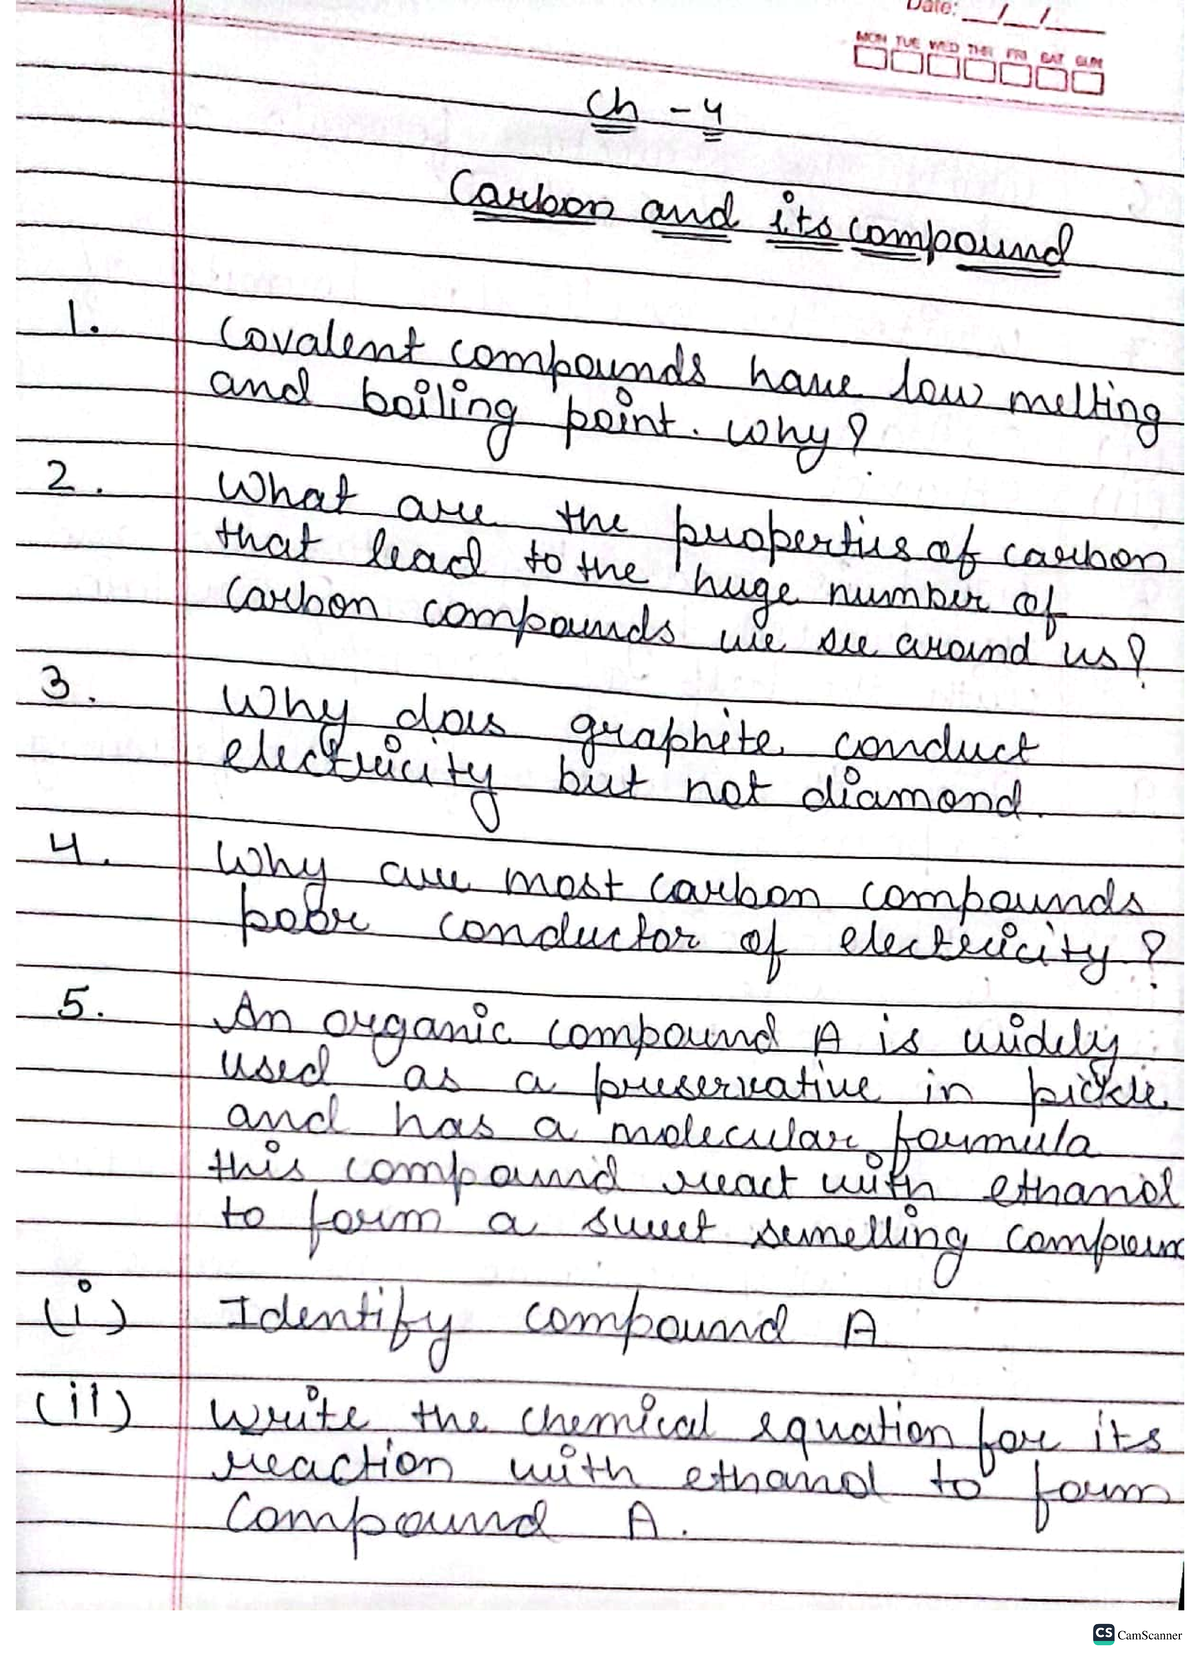 Date: __/__/__
MON TUE WED THR FRI SAT SUN
Ch - 4
Carbon and its compound
1. Covalent compounds have low melting
and boiling point. Why?
2. What are the properties of carbon
that lead to the huge number of
carbon compounds we see around us?
3. Why does graphite conduct
electricity but not diamond.
4. Why are most carbon compounds
poor conductor of electricity?
5. An organic compound A is widely
used as a preservative in pickle
and has a molecular formula
this compound react with ethanol
to form a sweet semelling compoun
(i) Identify compound A
(ii) Write the chemical equation for its
reaction with ethanol to form
Compound A.
CS CamScanner